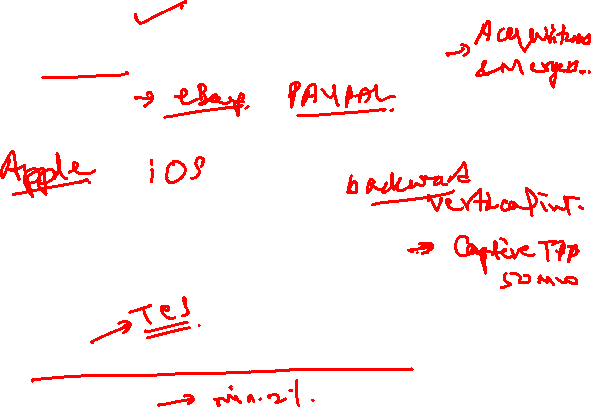 → Acquisitions
& Mergers..
→ eBay. PAYPAL
Apple iOS
backward
vertical int.
→ Captive TPP
50 MW
→ TCS.
→ min. 2%.